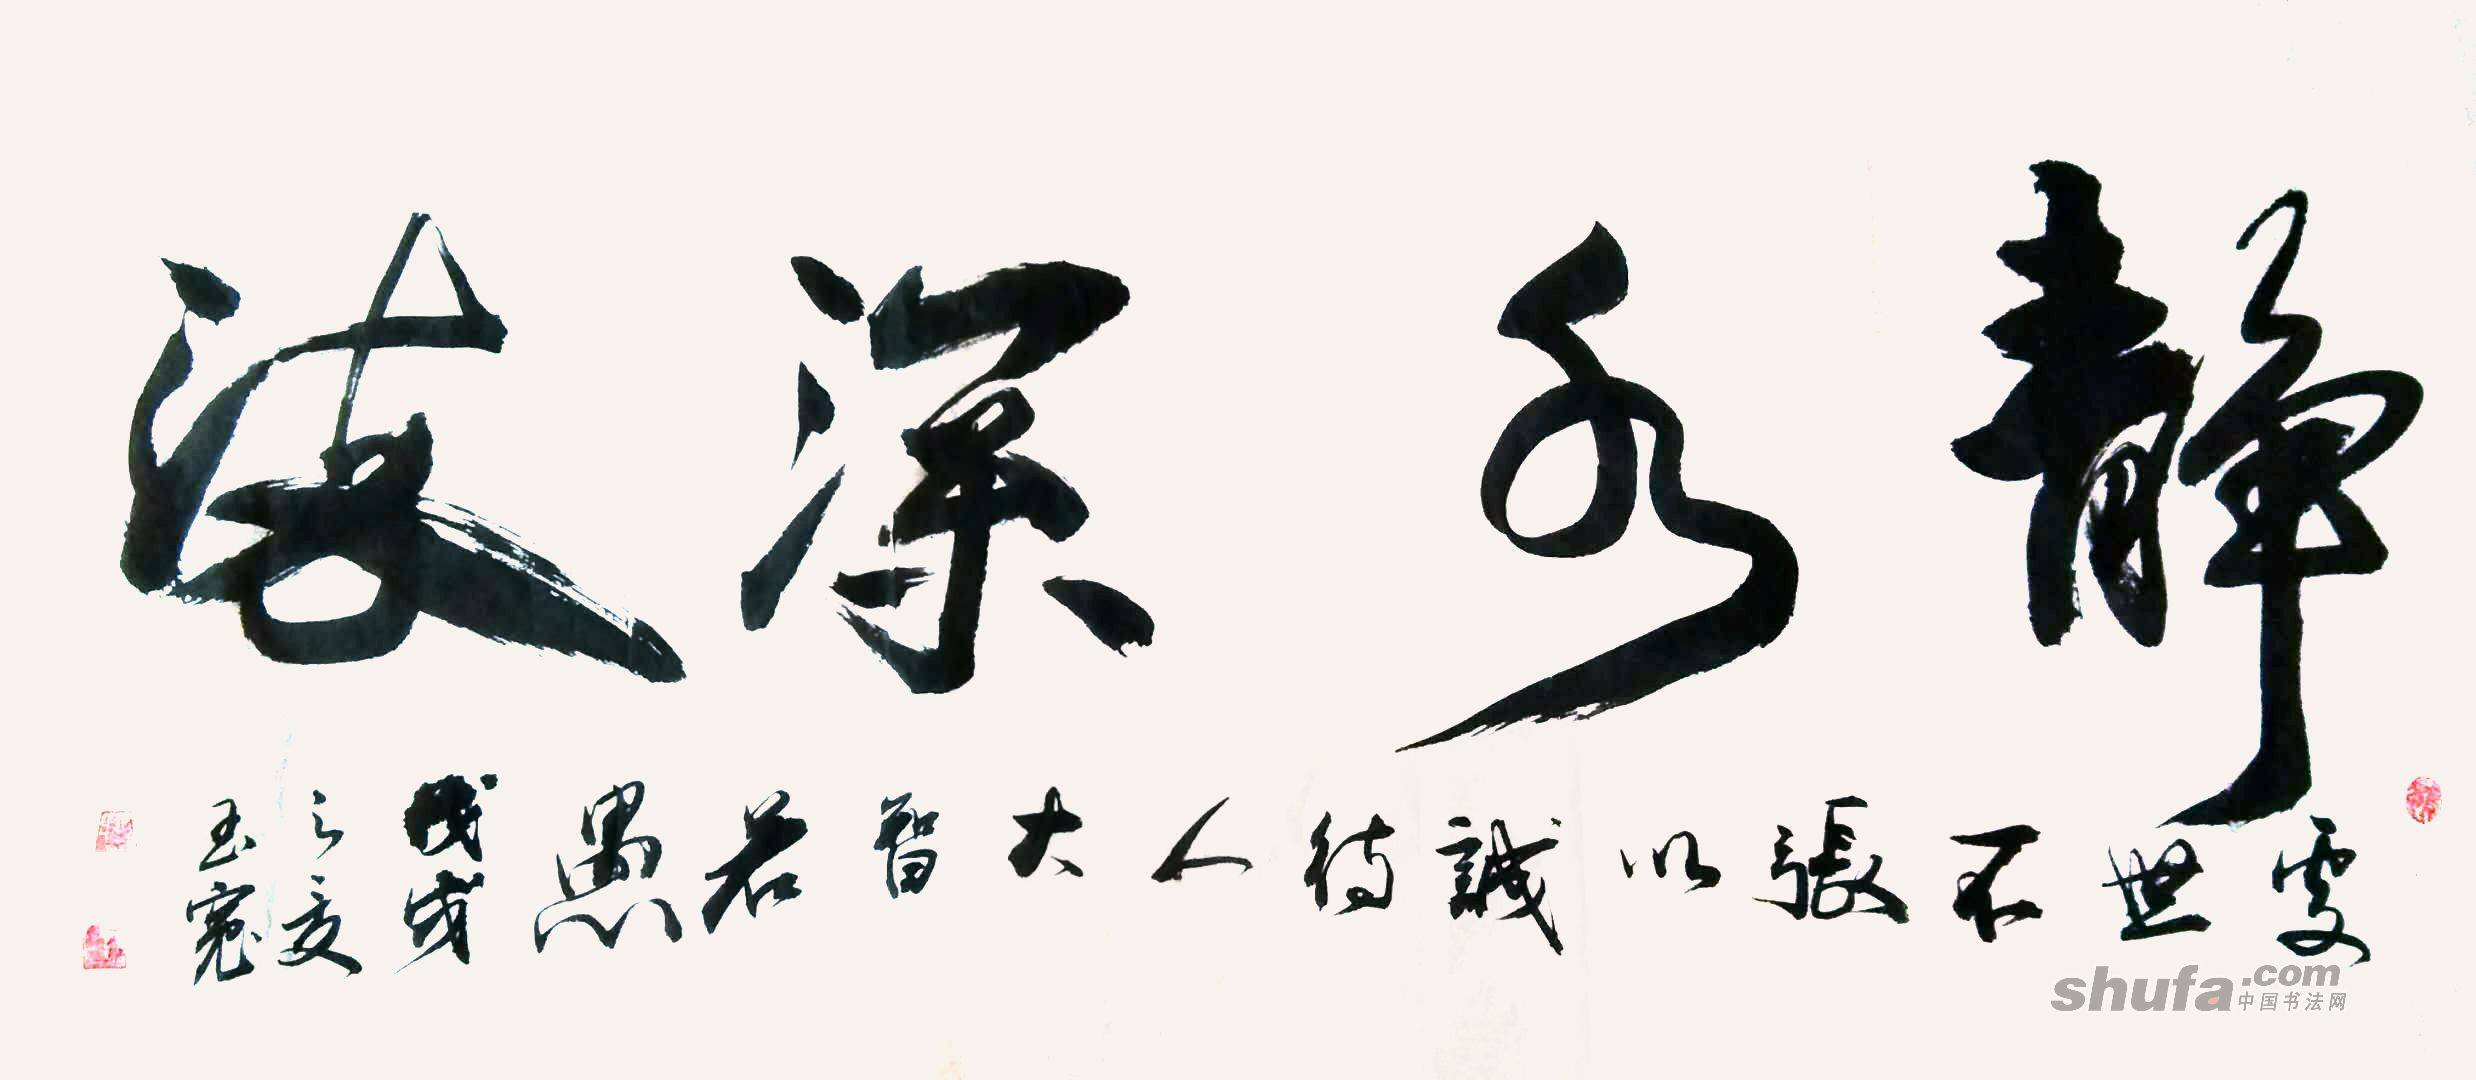 静水深流
處世不張以誠待人大智若愚
戊戌之夏
玉寬
shufa.com
中国书法网